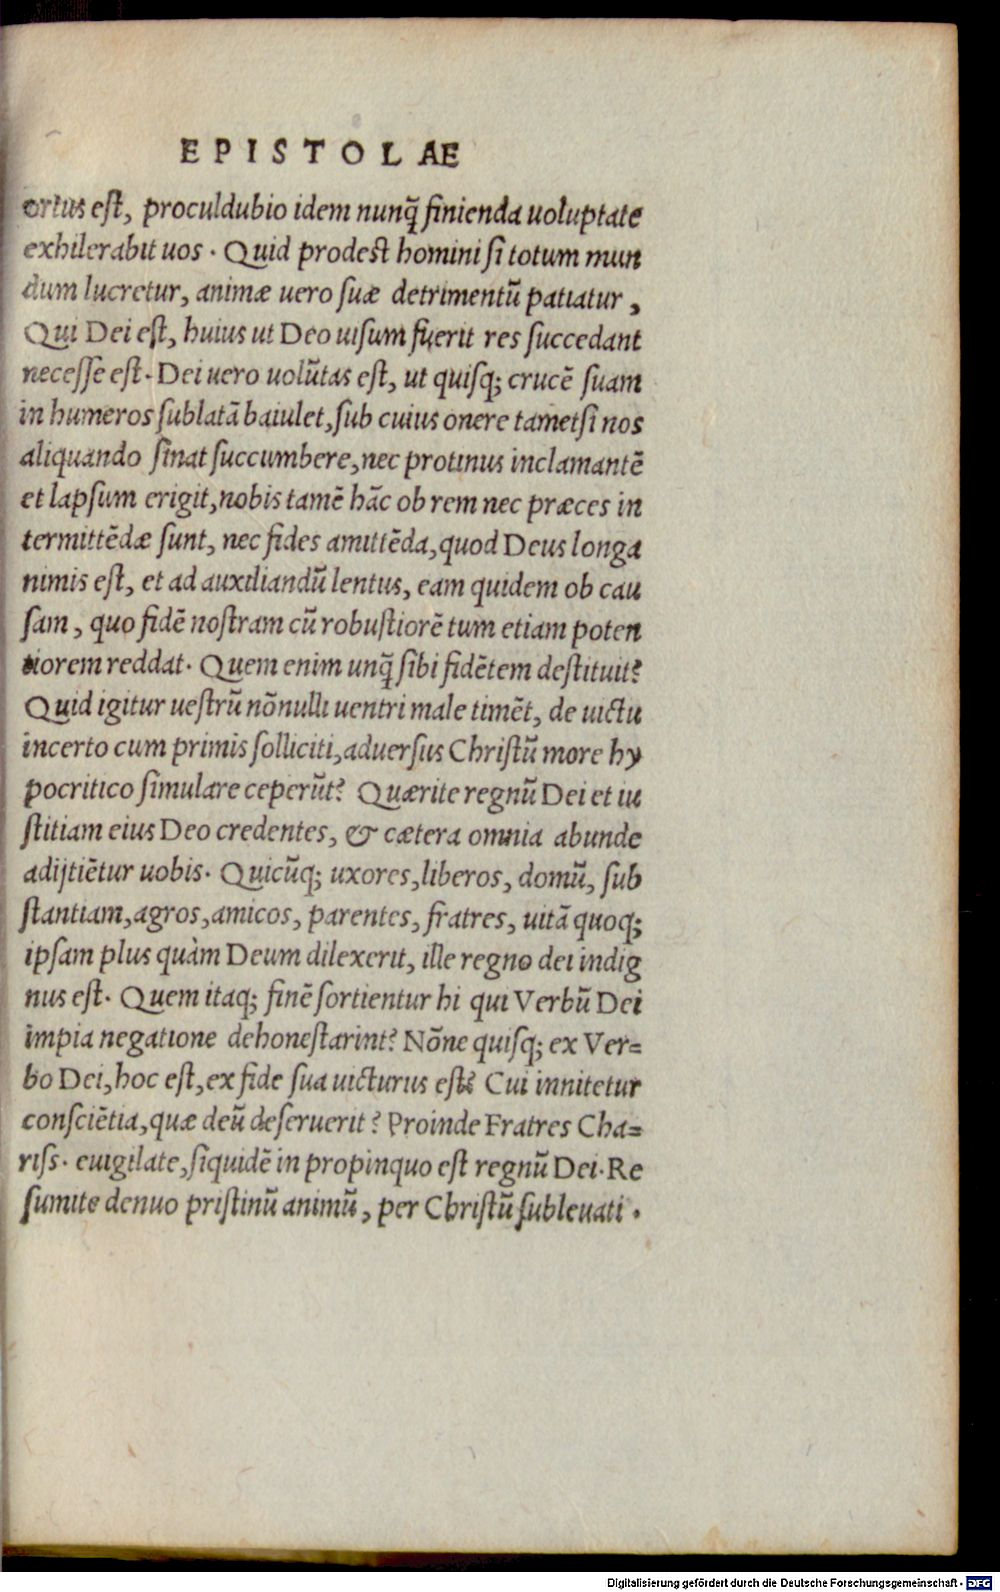 EPISTOLAE
ortus est, proculdubio idem nunq̃ finienda uoluptate
exhilerabit uos. Quid prodest homini si totum mun
dum lucretur, animæ uero suæ detrimentũ patiatur,
Qui Dei est, huius ut Deo uisum fuerit res succedant
necesse est. Dei uero uolũtas est, ut quisq; crucẽ suam
in humeros sublatã baiulet, sub cuius onere tametsi nos
aliquando sinat succumbere, nec protinus inclamantẽ
et lapsum erigit, nobis tamẽ hãc ob rem nec præces in
termittẽdæ sunt, nec fides amittẽda, quod Deus longa
nimis est, et ad auxiliandũ lentus, eam quidem ob cau
sam, quo fidẽ nostram cũ robustiorẽ tum etiam poten
tiorem reddat. Quem enim unq̃ sibi fidẽtem destituit?
Quid igitur uestrũ nõnulli uentri male timẽt, de uictu
incerto cum primis solliciti, aduersus Christũ more hy
pocritico simulare ceperũt? Quærite regnũ Dei et iu
stitiam eius Deo credentes, & cætera omnia abunde
adijtiẽtur uobis. Quicũq; uxores, liberos, domũ, sub
stantiam, agros, amicos, parentes, fratres, uitã quoq;
ipsam plus quàm Deum dilexerit, ille regno dei indig
nus est. Quem itaq; finẽ sortientur hi qui Verbũ Dei
impia negatione dehonestarint? Nõne quisq; ex Ver=
bo Dei, hoc est, ex fide sua uicturus est? Cui innitetur
consciẽtia, quæ deũ deseruerit? Proinde Fratres Cha=
riss. euigilate, siquidẽ in propinquo est regnũ Dei. Re
sumite denuo pristinũ animũ, per Christũ subleuati.
Digitalisierung gefördert durch die Deutsche Forschungsgemeinschaft - DFG